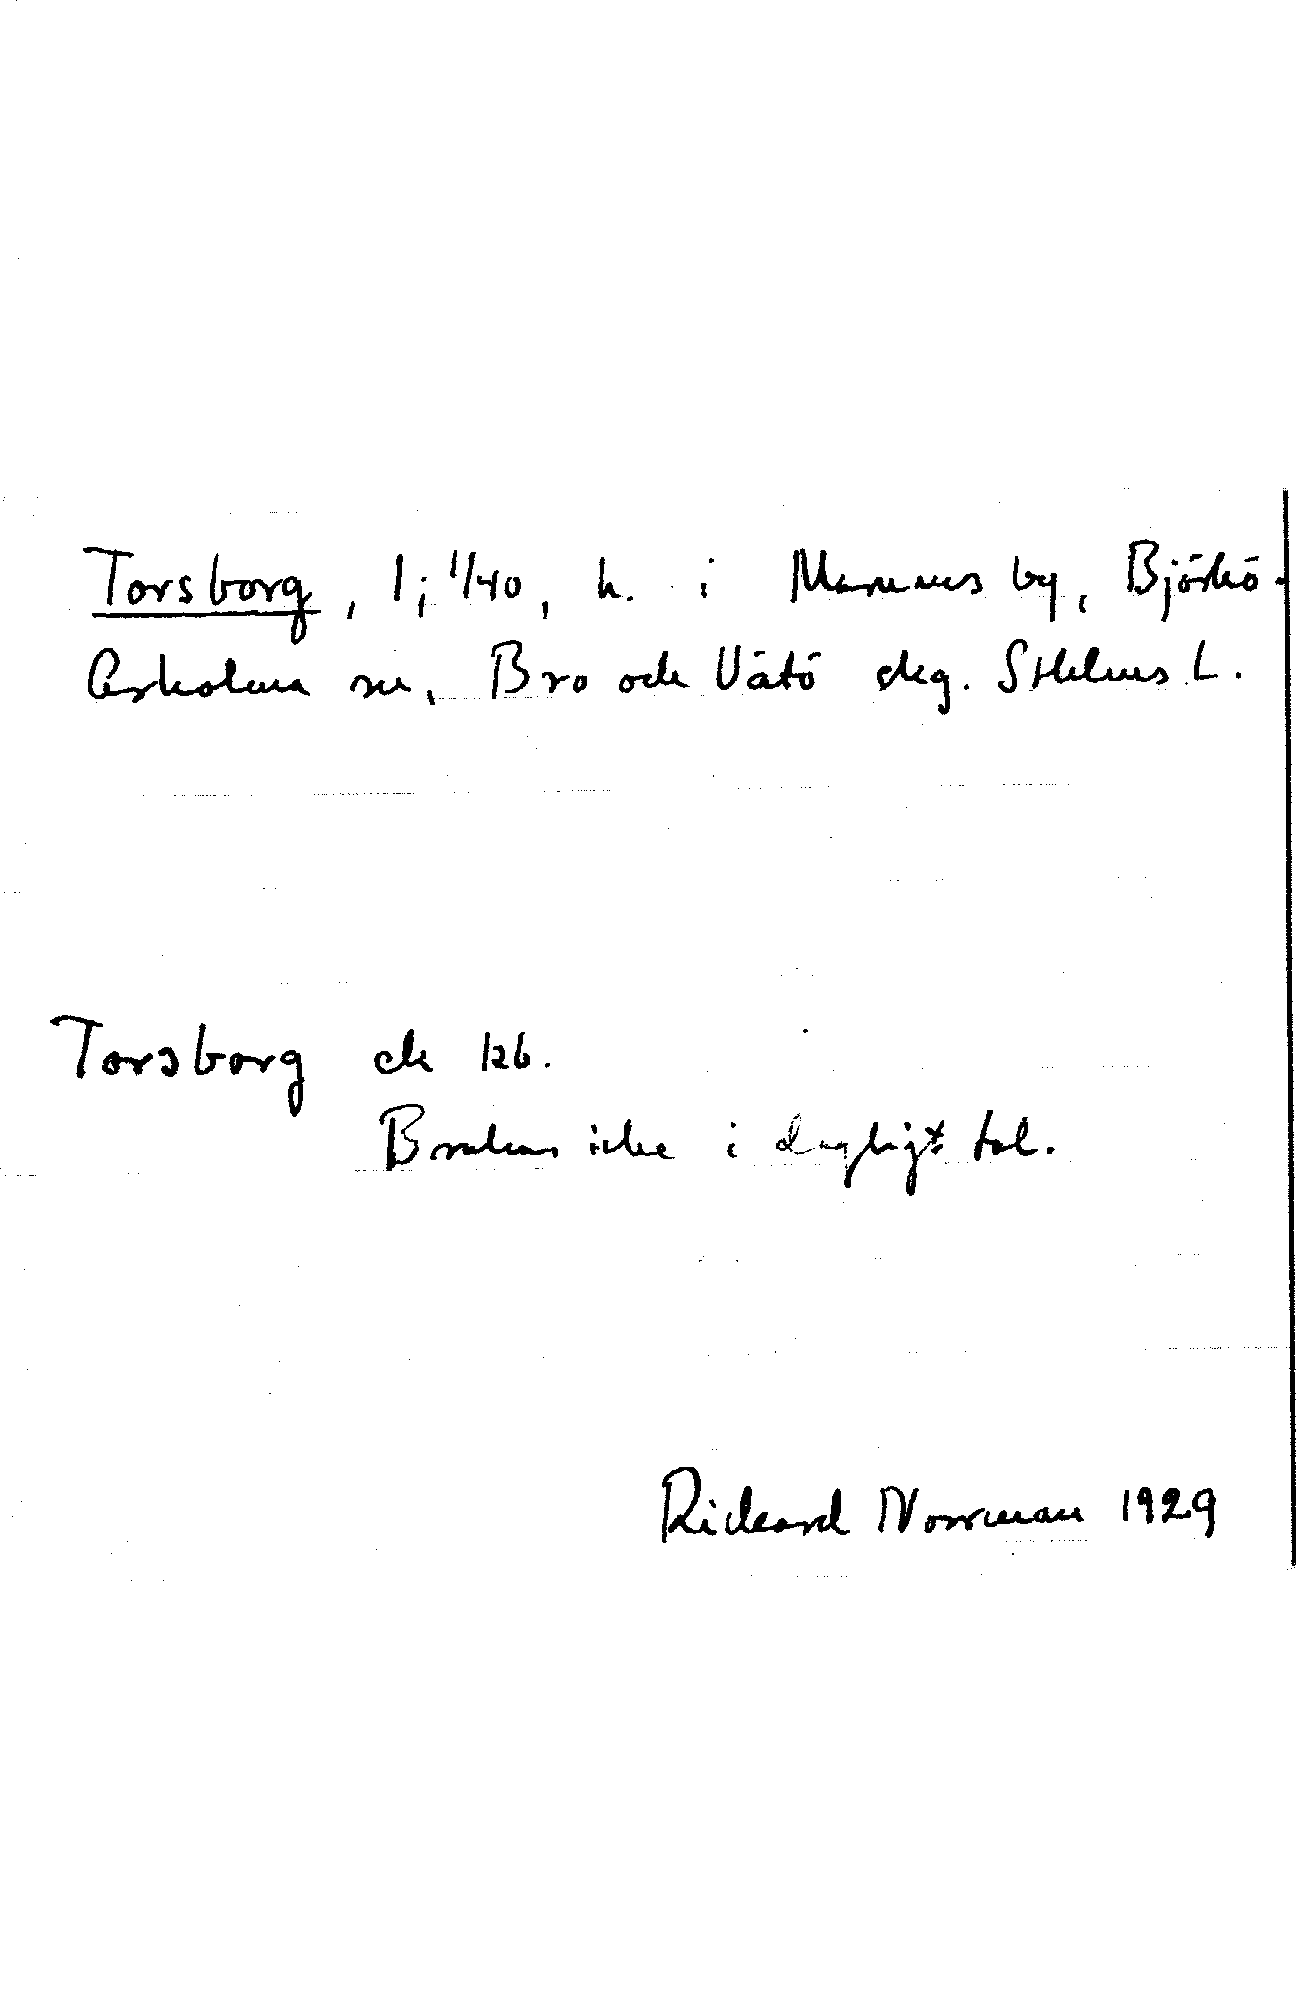 Torsborg, 1; 1/40, h. i Marums by, Björkö-
Arholma sn, Bro och Vätö skg. Sthlms L.
Torsborg ek kb.
Brukas icke i dagligt tal.
Rickard Norrman 1929